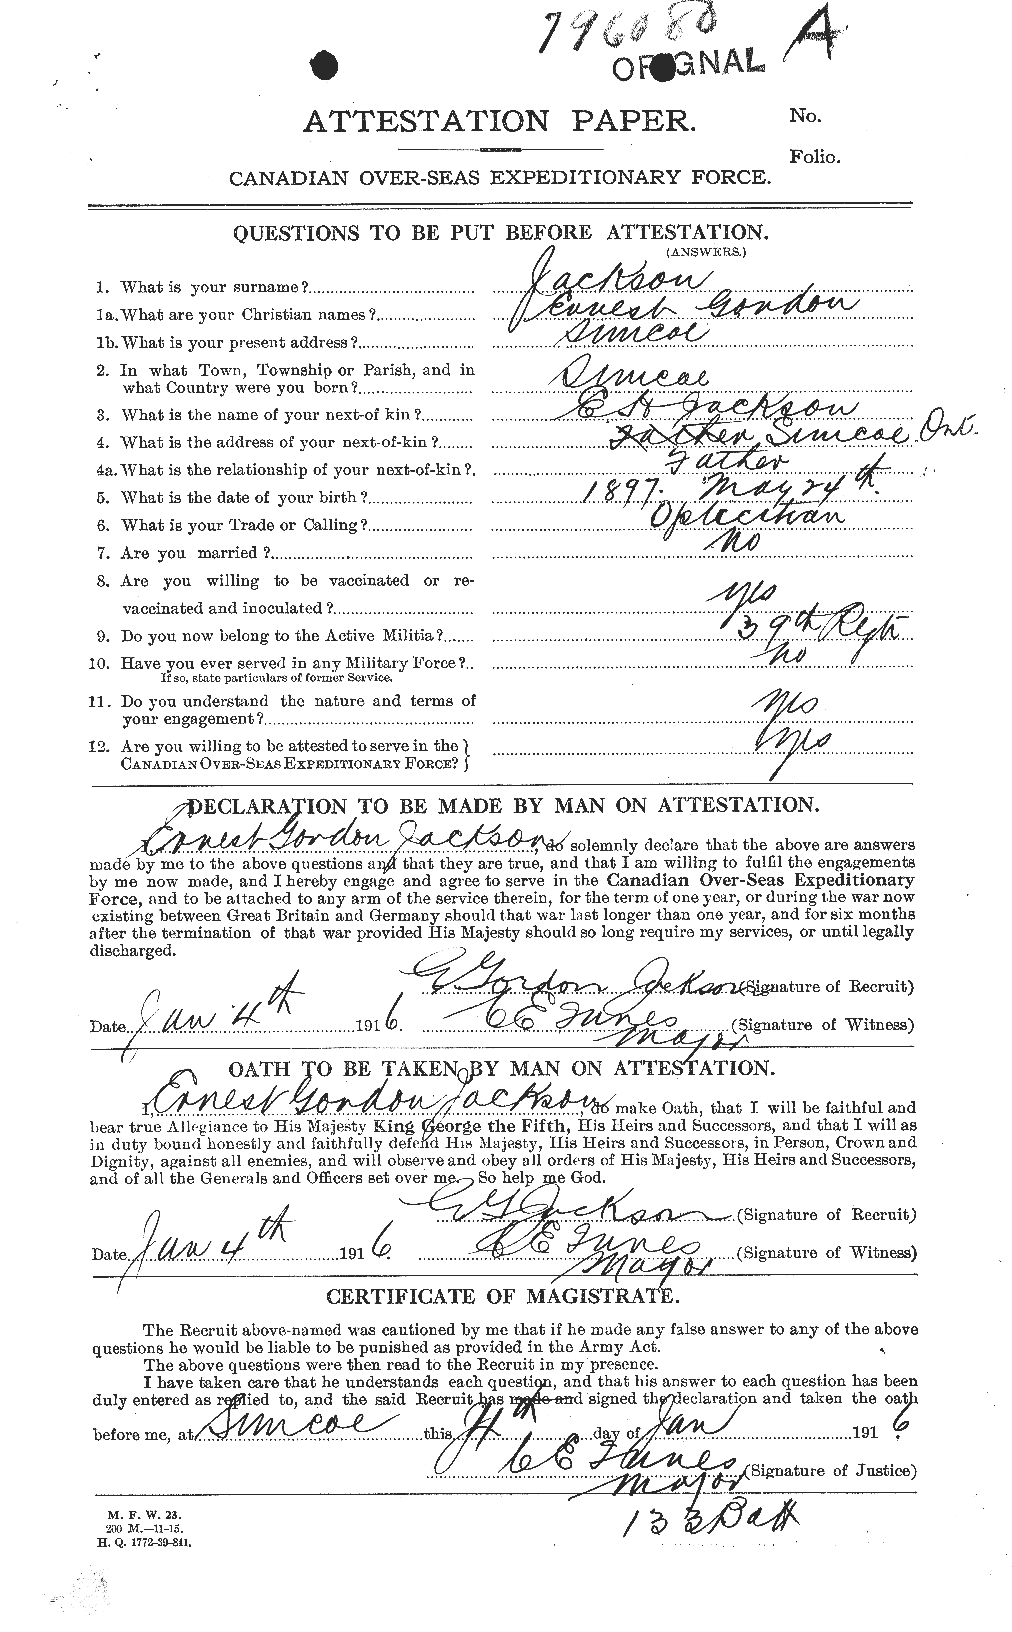 796080 A
ORIGNAL
ATTESTATION PAPER.
No.
Folio.
CANADIAN OVER-SEAS EXPEDITIONARY FORCE.
QUESTIONS TO BE PUT BEFORE ATTESTATION.
(ANSWERS.)
1. What is your surname? Jackson
1a. What are your Christian names? Ernest Gordon
1b. What is your present address? Simcoe
2. In what Town, Township or Parish, and in
what Country were you born? Simcoe
3. What is the name of your next-of kin? E H Jackson
4. What is the address of your next-of-kin? Father Simcoe Ont.
4a. What is the relationship of your next-of-kin? Father
5. What is the date of your birth? 1897. May 24th.
6. What is your Trade or Calling? Opticitian
7. Are you married? No
8. Are you willing to be vaccinated or re-
vaccinated and inoculated? yes
9. Do you now belong to the Active Militia? 39th Regt
10. Have you ever served in any Military Force? No
If so, state particulars of former Service.
11. Do you understand the nature and terms of
your engagement? yes
12. Are you willing to be attested to serve in the
CANADIAN OVER-SEAS EXPEDITIONARY FORCE? yes
DECLARATION TO BE MADE BY MAN ON ATTESTATION.
Ernest Gordon Jackson, do solemnly declare that the above are answers
made by me to the above questions and that they are true, and that I am willing to fulfil the engagements
by me now made, and I hereby engage and agree to serve in the Canadian Over-Seas Expeditionary
Force, and to be attached to any arm of the service therein, for the term of one year, or during the war now
existing between Great Britain and Germany should that war last longer than one year, and for six months
after the termination of that war provided His Majesty should so long require my services, or until legally
discharged.
E Gordon Jackson (Signature of Recruit)
Date Jan 4th 1916. (Signature of Witness)
Major
OATH TO BE TAKEN BY MAN ON ATTESTATION.
I, Ernest Gordon Jackson, do make Oath, that I will be faithful and
bear true Allegiance to His Majesty King George the Fifth, His Heirs and Successors, and that I will as
in duty bound honestly and faithfully defend His Majesty, His Heirs and Successors, in Person, Crown and
Dignity, against all enemies, and will observe and obey all orders of His Majesty, His Heirs and Successors,
and of all the Generals and Officers set over me. So help me God.
E G Jackson (Signature of Recruit)
Date Jan 4th 1916. (Signature of Witness)
Major
CERTIFICATE OF MAGISTRATE.
The Recruit above-named was cautioned by me that if he made any false answer to any of the above
questions he would be liable to be punished as provided in the Army Act.
The above questions were then read to the Recruit in my presence.
I have taken care that he understands each question, and that his answer to each question has been
duly entered as replied to, and the said Recruit has made and signed the declaration and taken the oath
before me, at Simcoe this 4th day of Jan 1916
(Signature of Justice)
Major
133 Batt
M. F. W. 23.
200 M.—11-15.
H. Q. 1772-39-841.